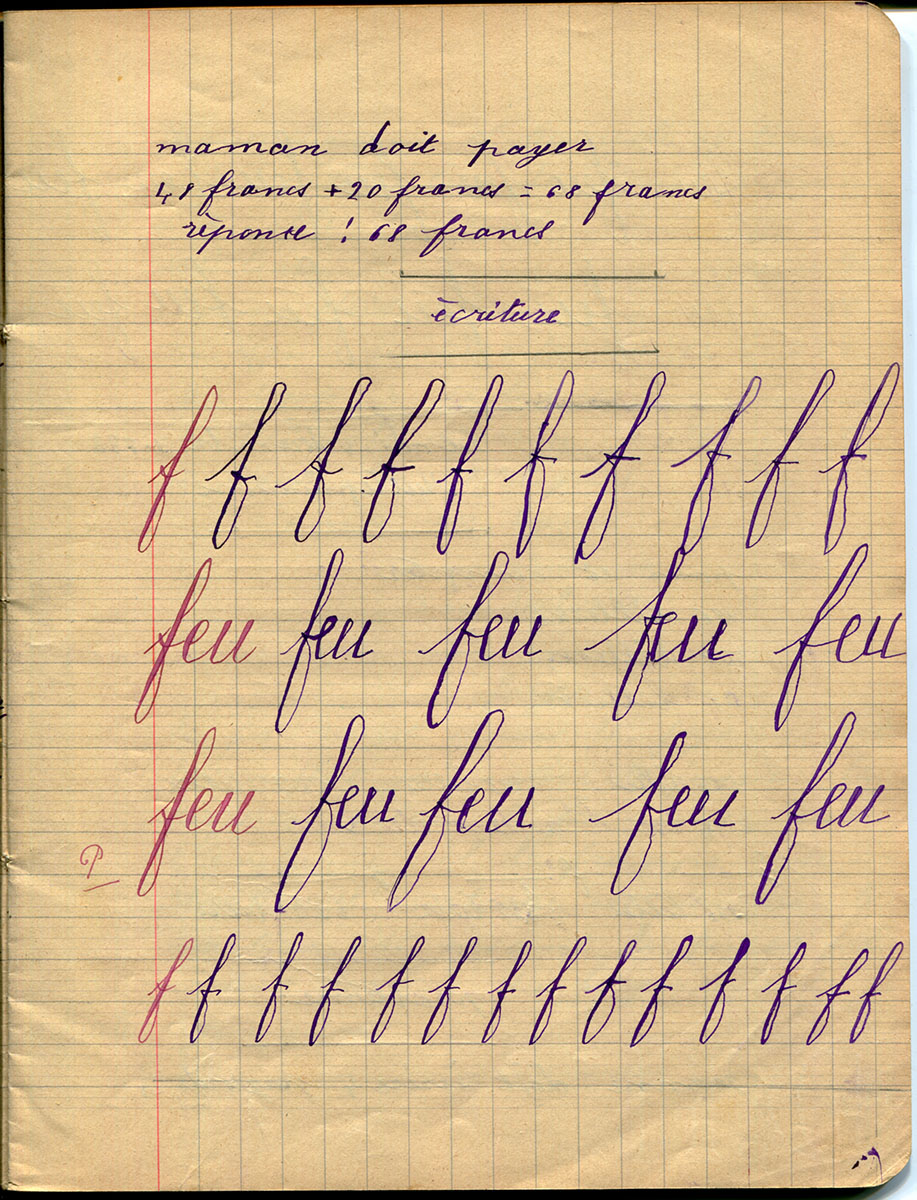 maman doit payer
48 francs + 20 francs = 68 francs
réponse : 68 francs
écriture
f f f f f f f f f f
feu feu feu feu feu
feu feu feu feu feu
P
f f f f f f f f f f f f f f